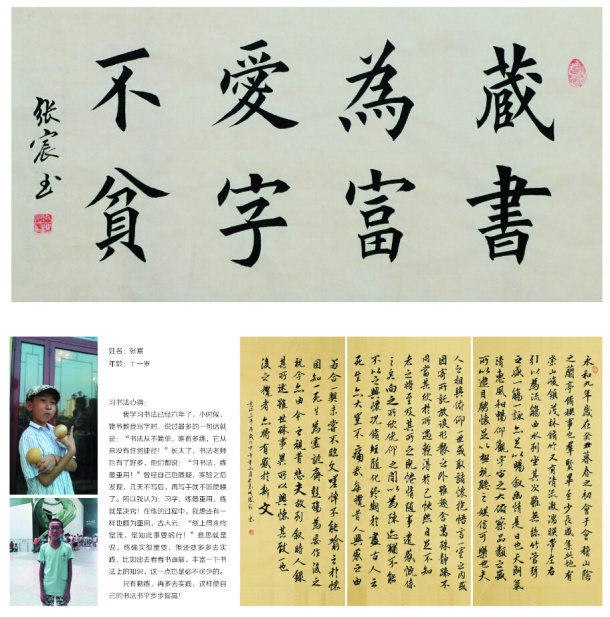 蔵書
為富
愛字
不貧
张宸
姓名：张宸
年龄：十一岁
习书法心得：
我学习书法已经六年了，小时候，
爷教我写字时，说过最多的一句话就
是：“书法从不简单，唯有多练，它从
来没有任何捷径！”长大了，书法老师
也有了好多，他们都说：“习书法，练
最重用！”曾经自己也质疑，实验之后
发现，几天不写后，再写手就不听使唤
了。所以我认为：习字，练最重用，练
就是诀窍！在练的过程中，我想还有一
样也颇为重用，古人云：“纸上得来终
觉浅，觉知此事要躬行！”意思就是
说，练确实很重要，但还要多多去实
践，比如出去看看书画展，丰富一下书
法上的知识，这一点也是必不可少的。
只有勤练，再多去实践，这样使自
己的书法书平步步提高！
永和九年歲在癸丑暮春之初會于會稽山陰
之蘭亭脩禊事也羣賢畢至少長咸集此地有
崇山峻領茂林脩竹又有清流激湍暎帶左右
引以為流觴曲水列坐其次雖無絲竹管弦
之盛一觴一詠亦足以暢敘幽情是日也天朗氣
清惠風和暢仰觀宇宙之大俯察品類之盛
所以遊目騁懷足以極視聽之娛信可樂也夫
人之相與俯仰一世或取諸懷抱悟言一室之内或
因寄所託放浪形骸之外雖趣舍萬殊靜躁不
同當其欣於所遇暫得於己快然自足不知
老之將至及其所之既惓情隨事遷感慨係
之矣向之所欣俛仰之間以為陳迹猶不能
不以之興懷況脩短隨化終期於盡古人云
死生亦大矣豈不痛哉每攬昔人興感之由
若合一契未嘗不臨文嗟悼不能喻之於懷
固知一死生為虛誕齊彭殤為妄作後之
視今亦由今之視昔悲夫故列敘時人錄
其所述雖世殊事異所以興懷其致一也
後之攬者亦將有感於斯文